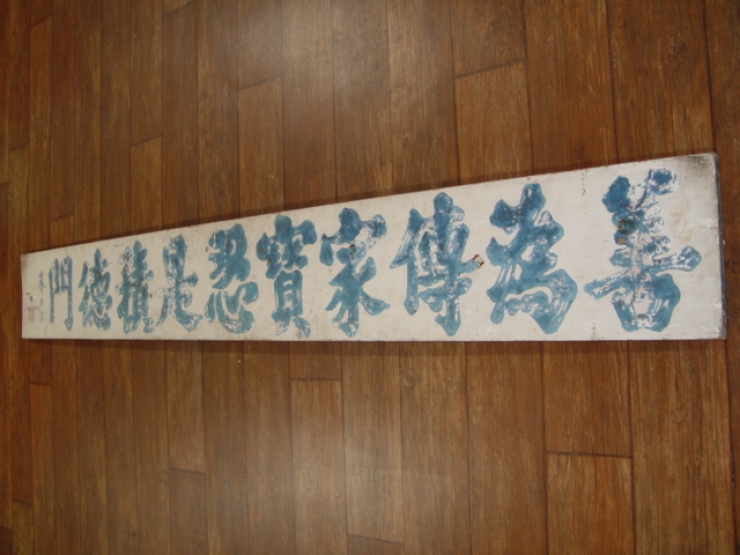 善為傳家寶忍是積德門